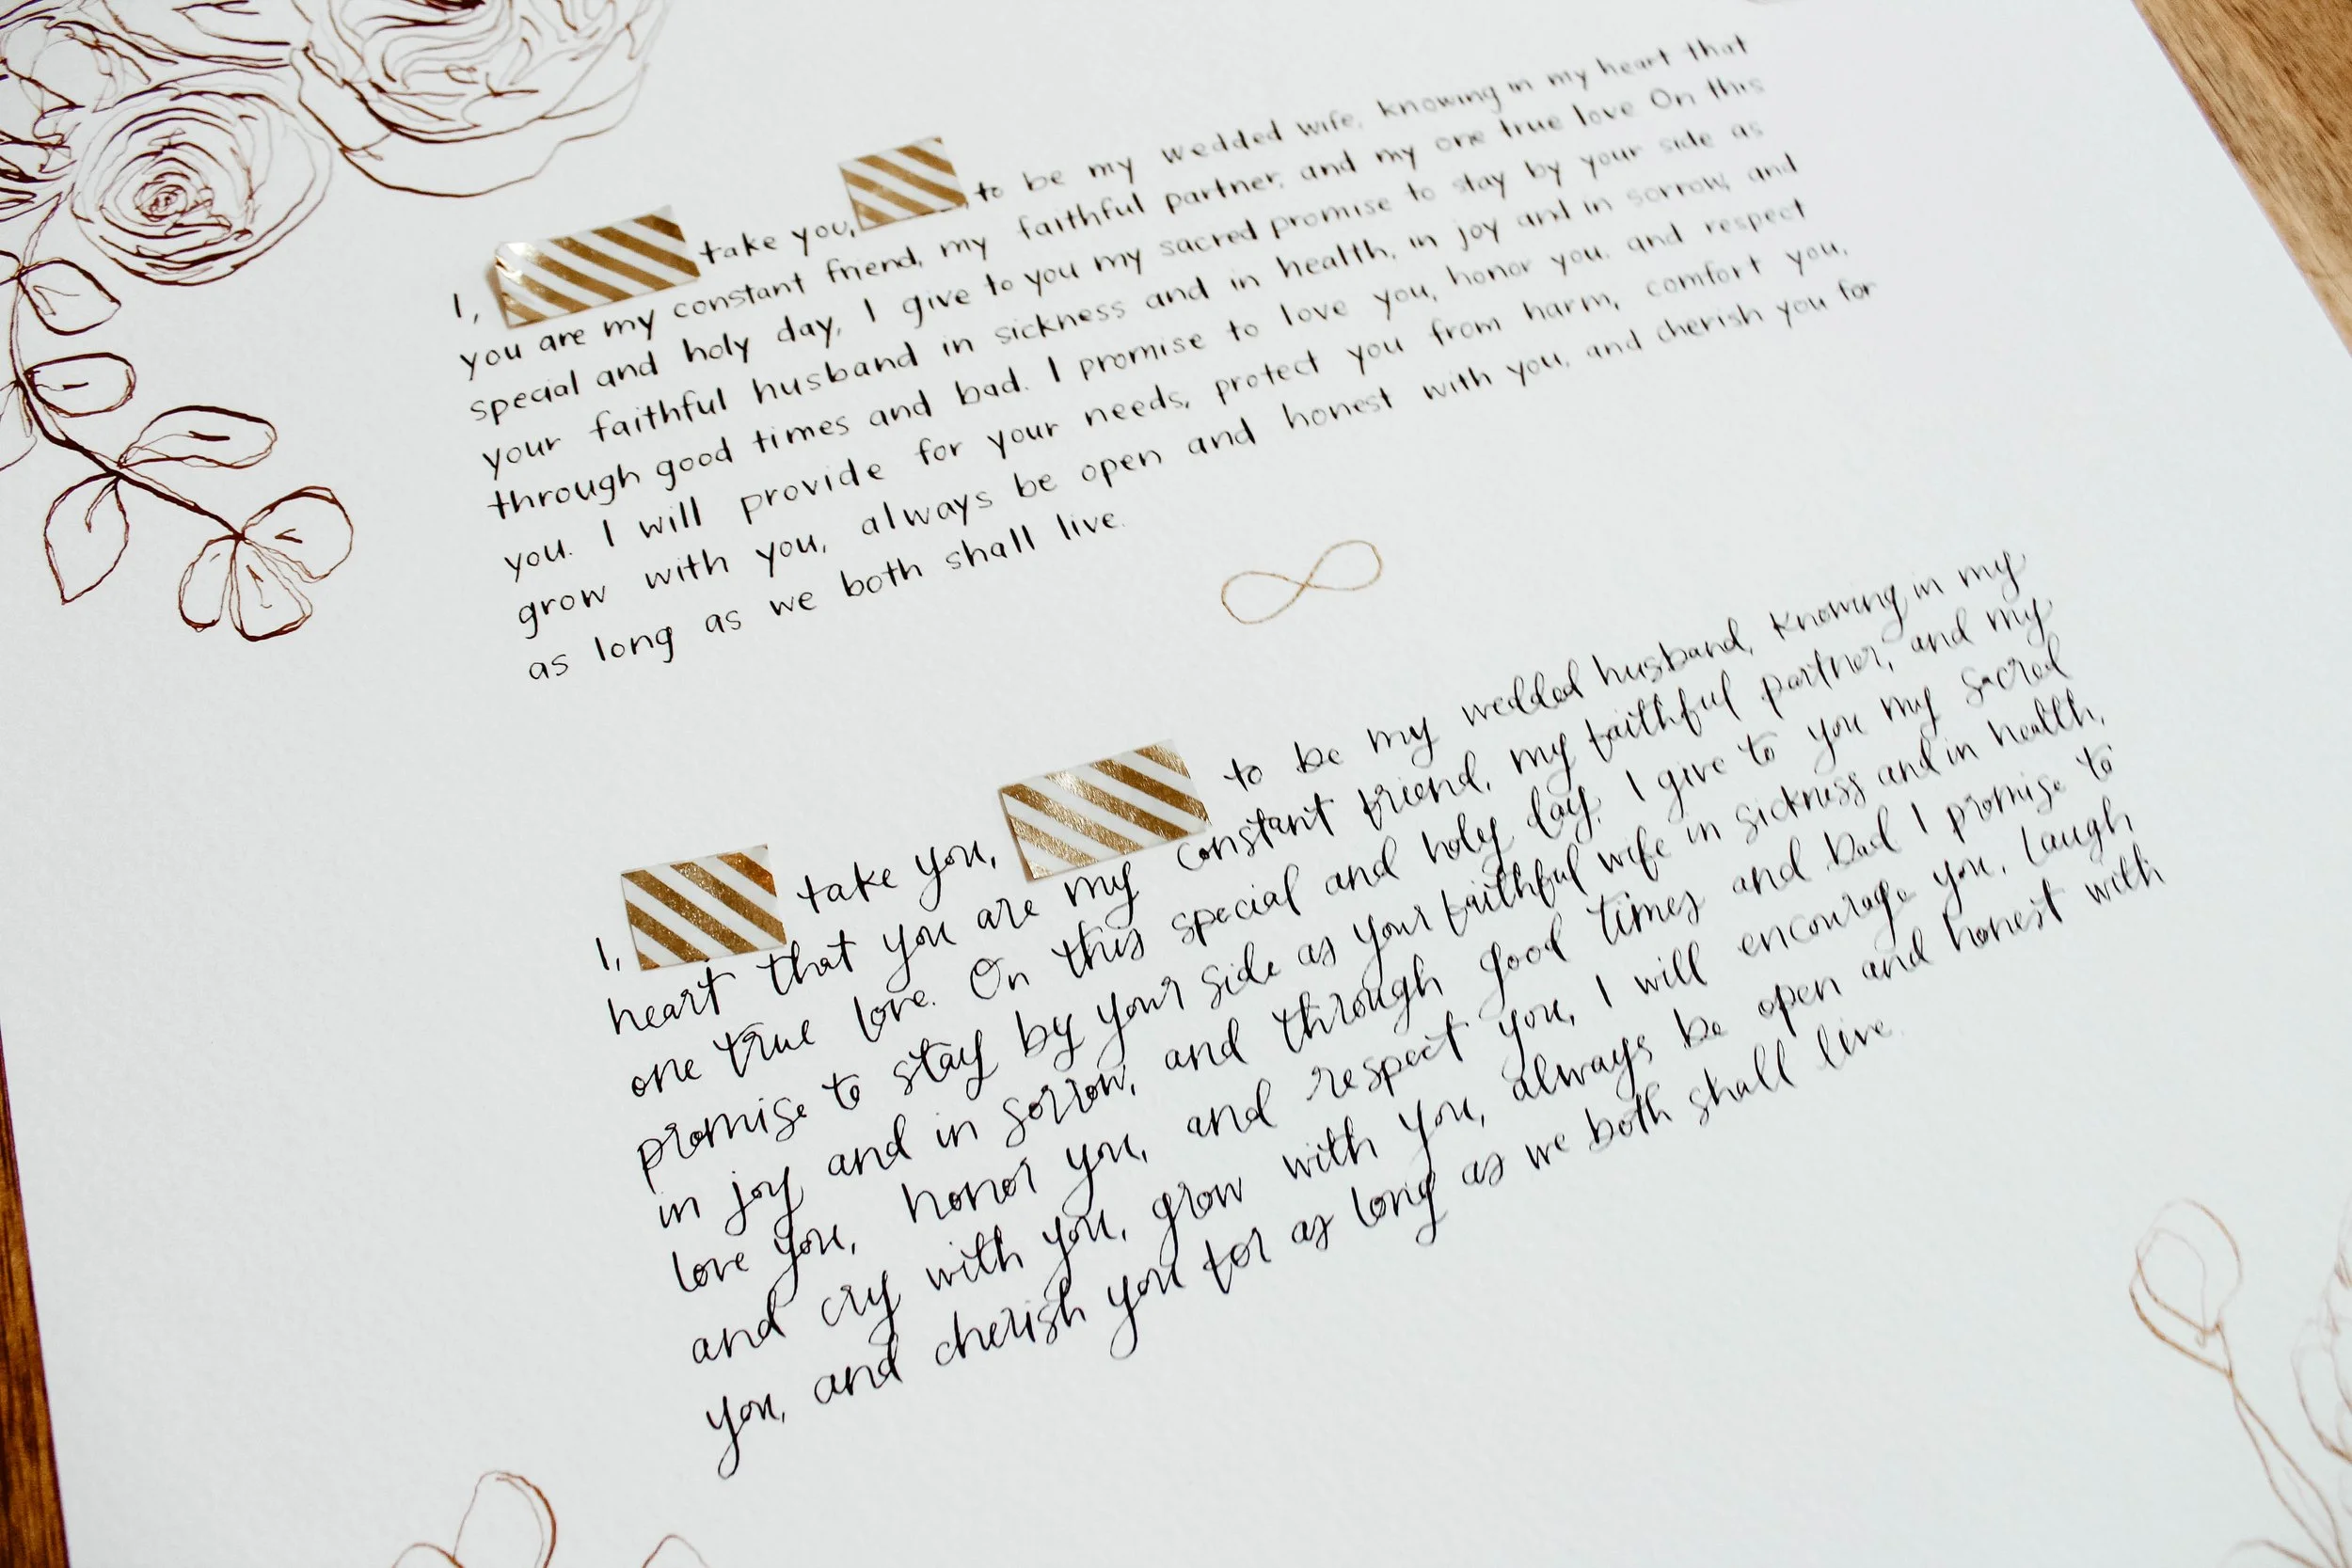 I, take you, to be my wedded wife, knowing in my heart that
you are my constant friend, my faithful partner, and my one true love On this
special and holy day, I give to you my sacred promise to stay by your side as
your faithful husband in sickness and in health, in joy and in sorrow, and
through good times and bad. I promise to love you, honor you, and respect
you. I will provide for your needs, protect you from harm, comfort you,
grow with you, always be open and honest with you, and cherish you for
as long as we both shall live.
I, take you, to be my wedded husband, knowing in my
heart that you are my constant friend, my faithful partner, and my
one true love. On this special and holy day, I give to you my sacred
promise to stay by your side as your faithful wife in sickness and in health,
in joy and in sorrow, and through good times and bad I promise to
love you, honor you, and respect you, I will encourage you, laugh
and cry with you, grow with you, always be open and honest with
you, and cherish you for as long as we both shall live.